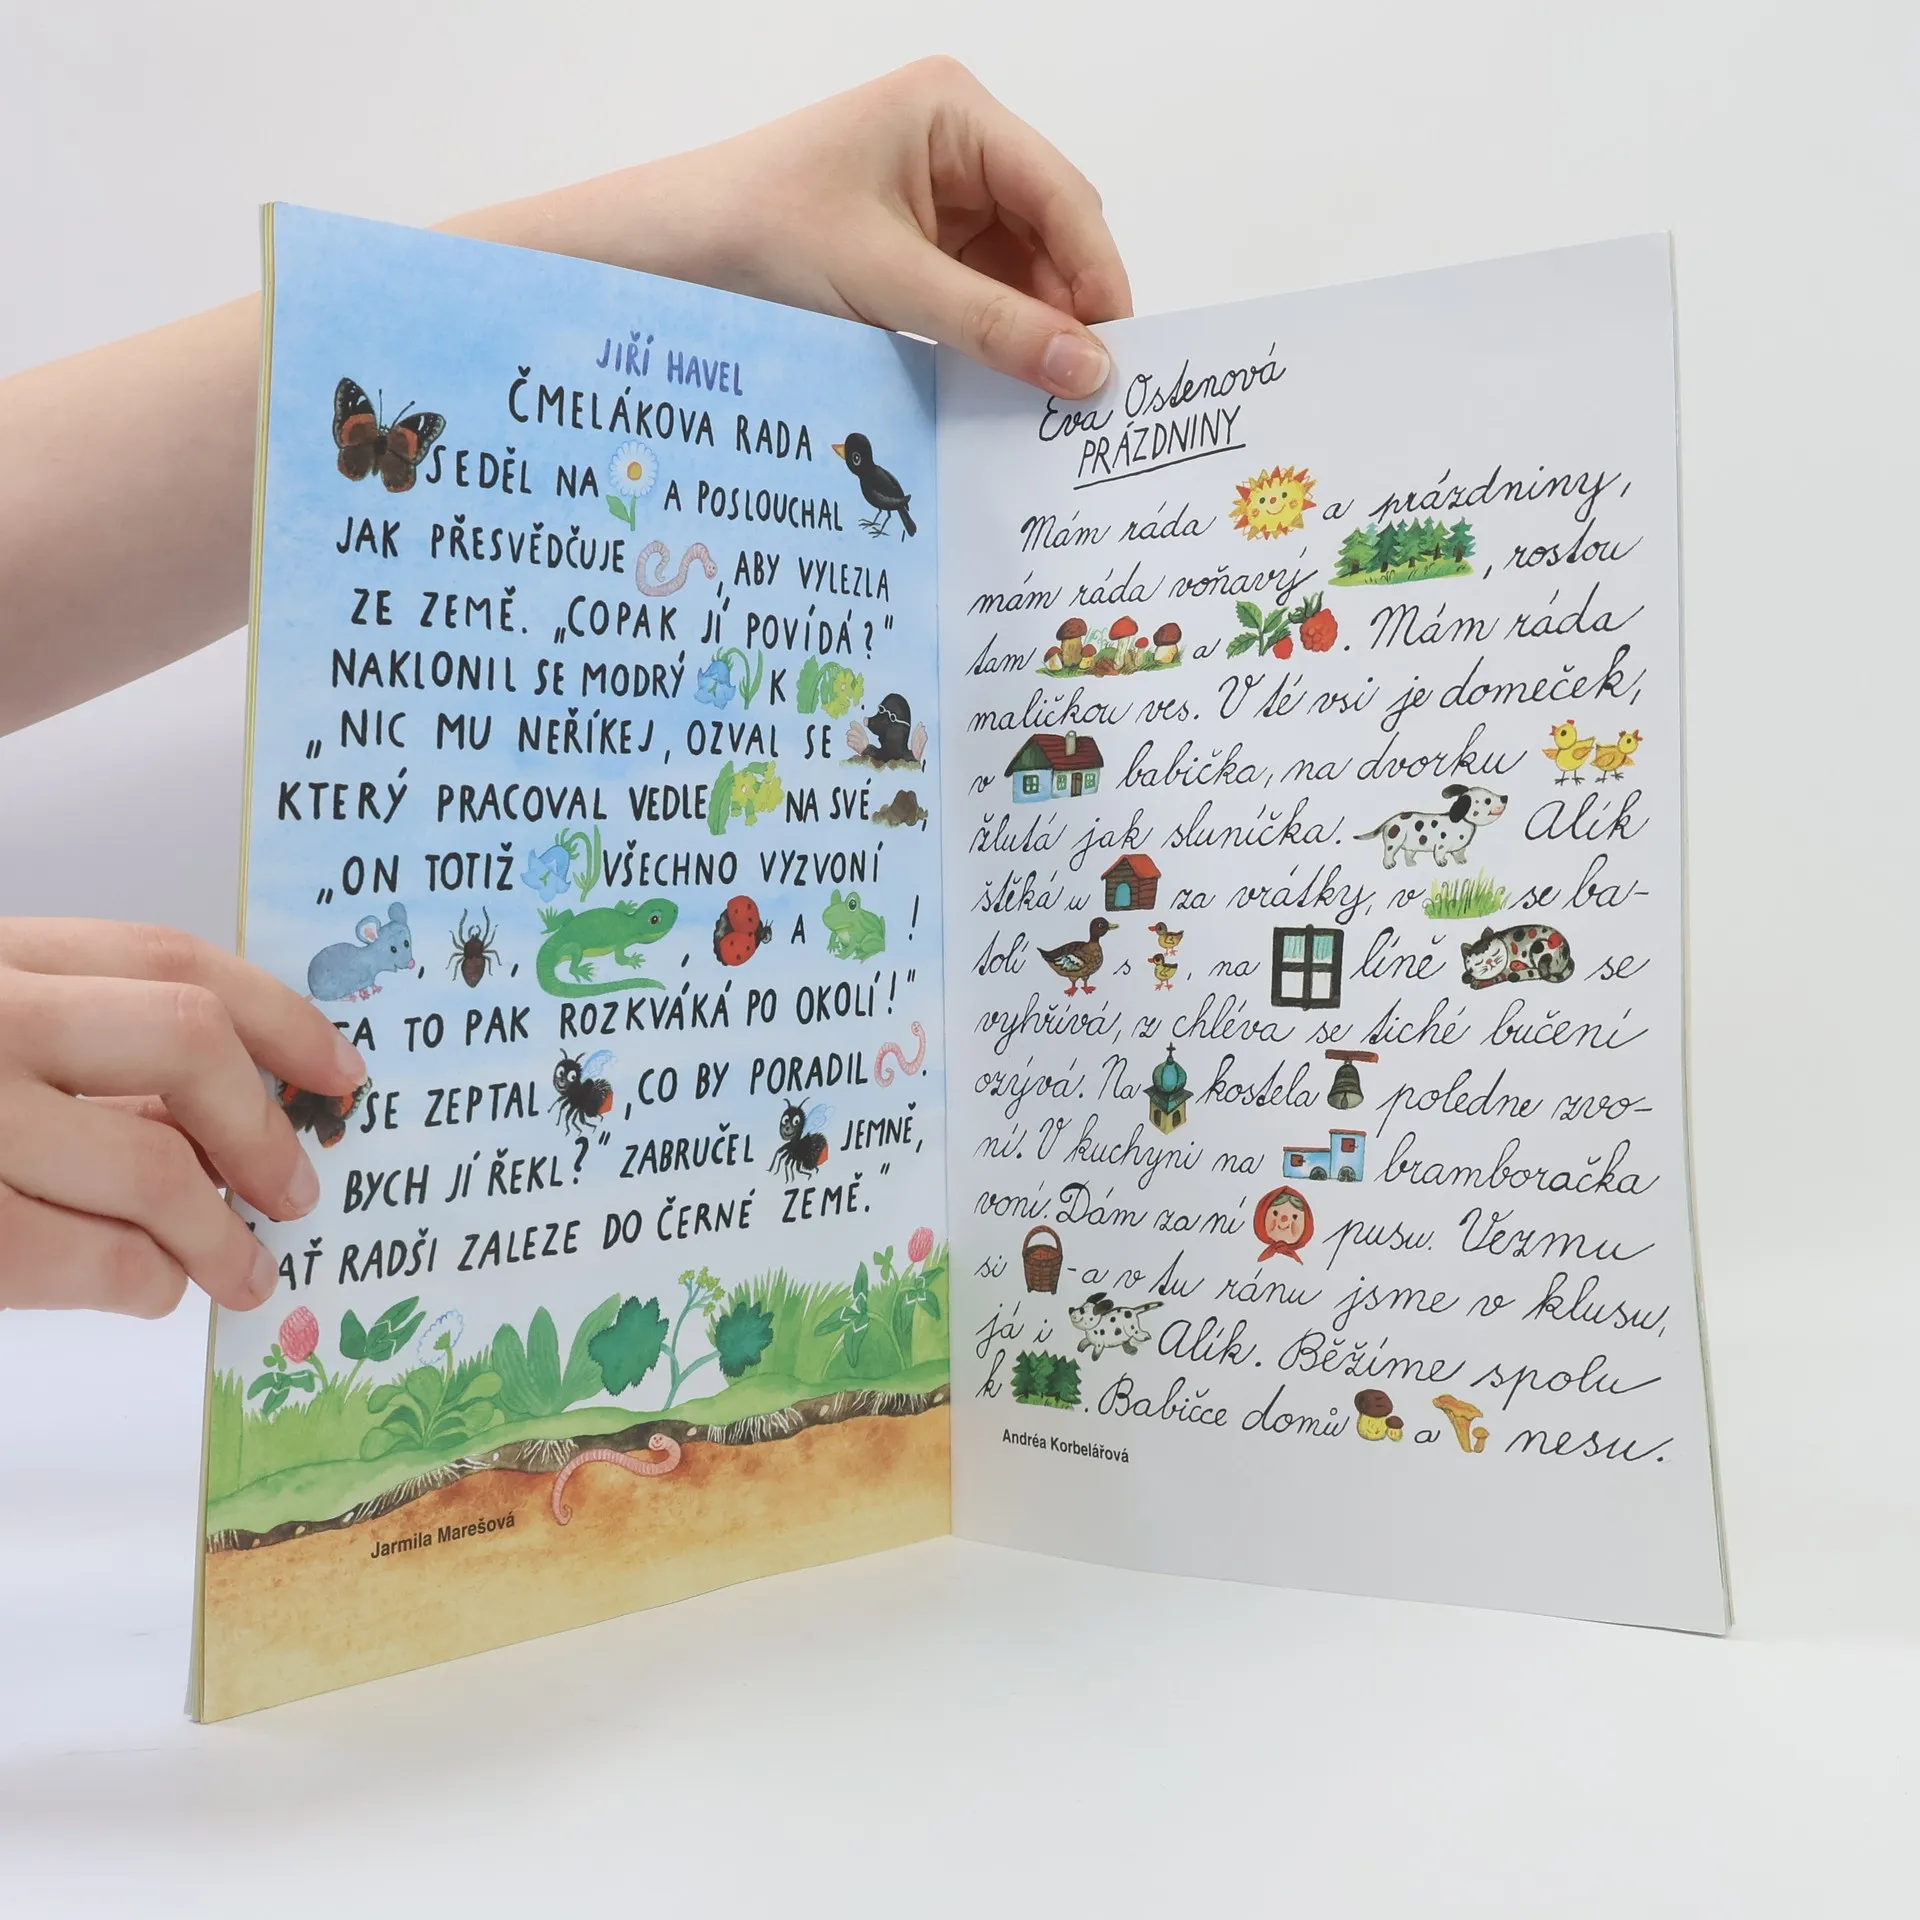 JIŘÍ HAVEL
ČMELÁKOVA RADA
SEDĚL NA A POSLOUCHAL,
JAK PŘESVĚDČUJE , ABY VYLEZLA
ZE ZEMĚ. „COPAK JÍ POVÍDÁ?"
NAKLONIL SE MODRÝ K .
„NIC MU NEŘÍKEJ, OZVAL SE ,
KTERÝ PRACOVAL VEDLE NA SVÉ ,
„ON TOTIŽ VŠECHNO VYZVONÍ
, , , A !
TA TO PAK ROZKVÁKÁ PO OKOLÍ!"
SE ZEPTAL , CO BY PORADIL .
BYCH JÍ ŘEKL?" ZABRUČEL JEMNĚ,
AŤ RADŠI ZALEZE DO ČERNÉ ZEMĚ."
Jarmila Marešová
Eva Ostenová
PRÁZDNINY
Mám ráda a prázdniny,
mám ráda voňavý , rostou
tam a . Mám ráda
maličkou ves. V té vsi je domeček,
v babička, na dvorku
žlutá jak sluníčka. Alík
štěká u za vrátky, v se ba-
tolí s , na líně se
vyhřívá, z chléva se tiché bučení
ozývá. Na kostela poledne zvo-
ní. V kuchyni na bramboračka
voní. Dám za ní pusu. Vezmu
si - a v tu ránu jsme v klusu,
já i Alík. Běžíme spolu
k . Babičce domů a nesu.
Andréa Korbelářová